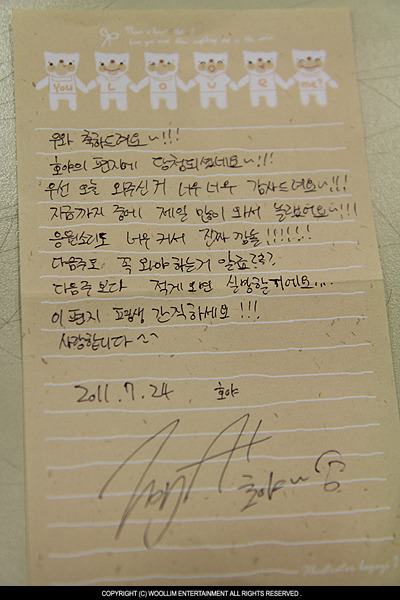 You LOVE me?
우와 축하드려요~!!!
호야의 편지에 당첨되셨네요~!!!
우선 오늘 와주신거 너무너무 감사드려요~!!!
지금까지 중에 제일 많이 와서 놀랬어요~!!!
응원소리도 너무 커서 진짜 깜놀!!!!!!
다음주도 꼭 와야 하는거 알죠???
다음주 보다 적게 오면 실망할꺼에요...
이 편지 평생 간직하세요 !!!
사랑합니다 ^^
2011.7.24 호야
호야~
COPYRIGHT (C) WOOLLIM ENTERTAINMENT ALL RIGHTS RESERVED .